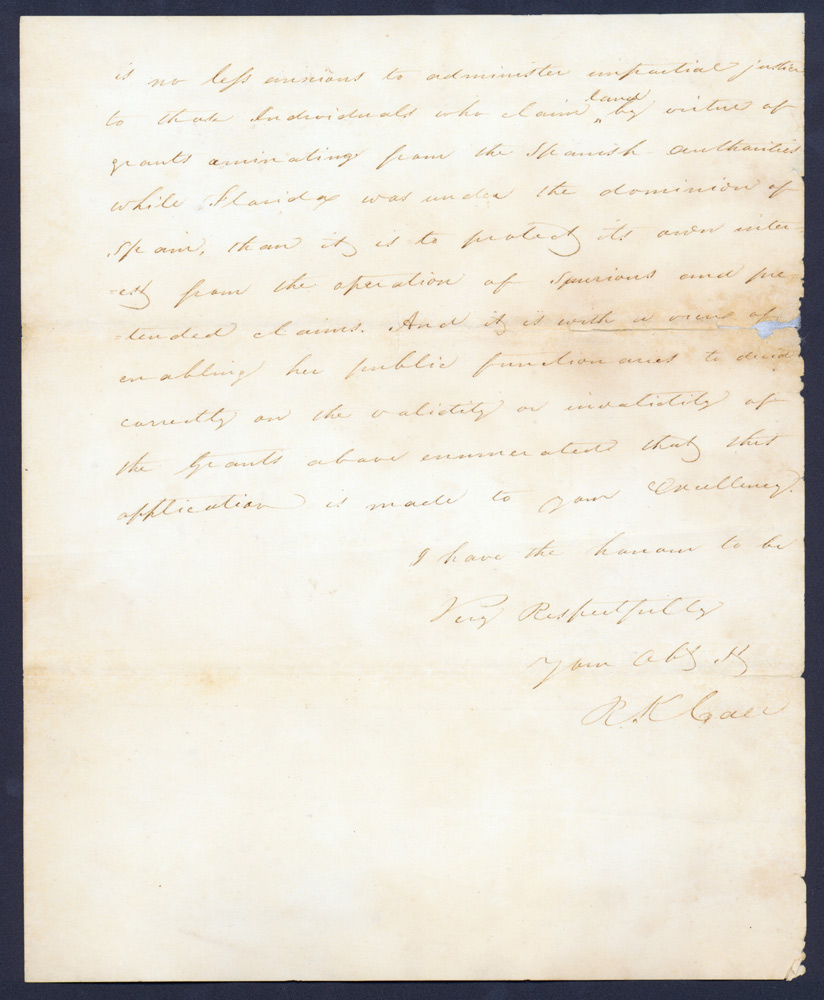 is no less anxious to administer impartial justice
to those Individuals who claim land by virtue of
grants aminating from the Spanish authorities
while Florida was under the dominion of
Spain, than it is to protect its own inter-
-est from the operation of Spurious and pre-
-tended claims. And it is with a view of
enabling her public functionaries to decide
correctly on the validity or invalidity of
the Grants above enumerated that this
application is made to your Excellency.
I have the honour to be
Very Respectfully
Your Obt St
R. K Call